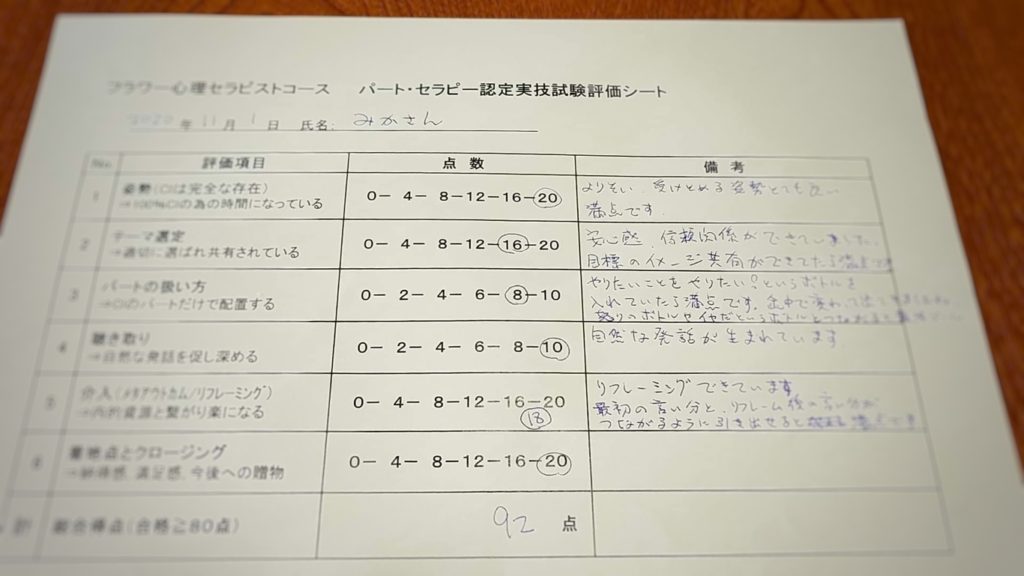 フラワー心理セラピストコース　パート・セラピー認定実技試験評価シート
2020 年 11 月 1 日 氏名: みかさん
No. 評価項目 点数 備考
1 姿勢(CIは完全な存在) 0- 4- 8-12-16-20 よりそい、受けとめる姿勢とても良い
→100%CIの為の時間になっている 満点です。
2 テーマ選定 0- 4- 8-12-16-20 安心感、信頼関係ができていました。
→適切に選ばれ共有されている 目標のイメージ共有ができてたら満点です
3 パートの扱い方 0- 2- 4- 6- 8-10 やりたいことをやりたい?というボトルを
→CIのパートだけで配置する 入れていたら満点です。
怒りのボトルや
4 聴き取り 0- 2- 4- 6- 8-10 自然な発話が生まれています。
→自然な発話を促し深める
5 介入(メタアウトカム/リフレーミング) 0- 4- 8-12-16-20 リフレーミングできています。
→内的資源と繋がり楽になる 18 最初の言い分と、リフレーム後の言い分が
つながるように引き出せると 満点です
6 着地点とクロージング 0- 4- 8-12-16-20
→納得感、満足感、今後への贈物
計 総合得点(合格≧80点) 92 点